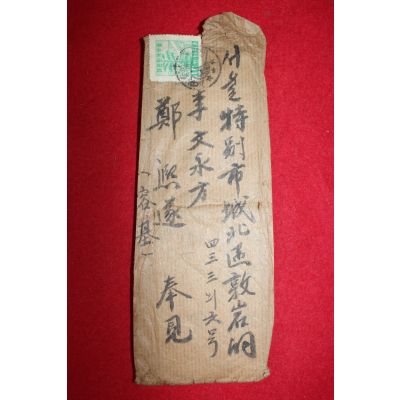 서울特別市城北區敦岩洞
四三三의六号
李文永方
鄭熙遂 奉見
(容基)